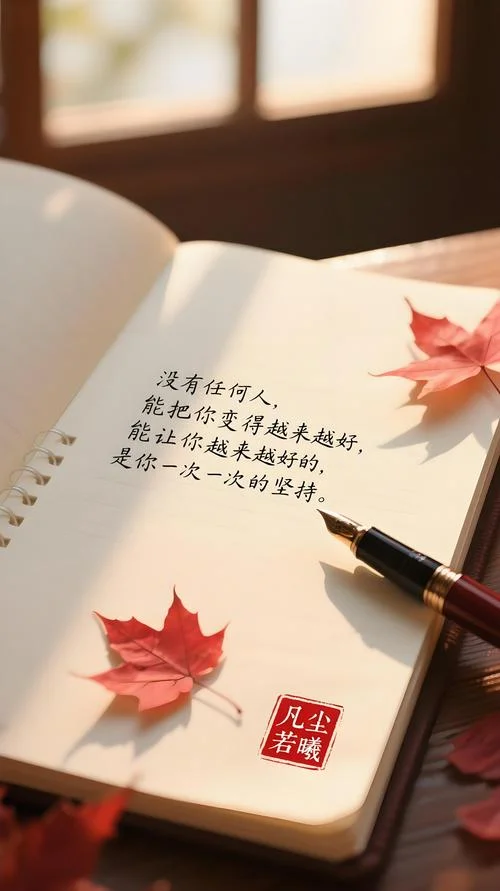 没有任何人，
能把你变得越来越好，
能让你越来越好的，
是你一次一次的坚持。
凡尘
若曦